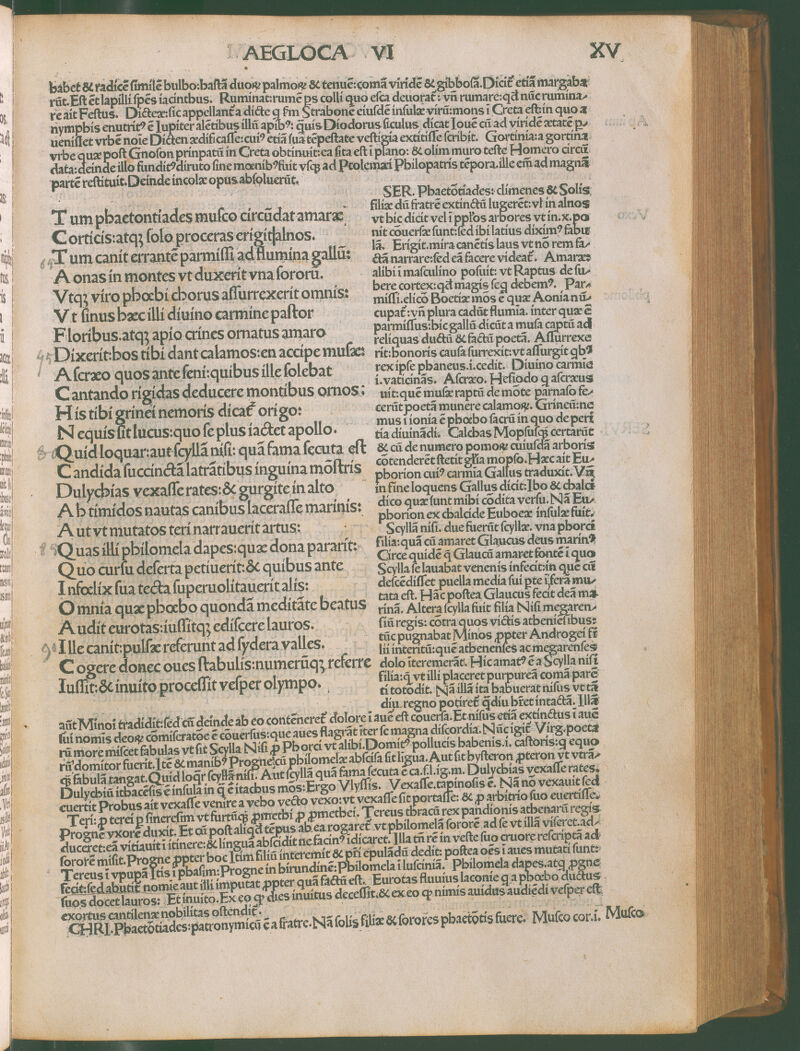 AEGLOCA VI XV
habet & radicē similē bulbo: hastā duoꝝ palmoꝝ & tenuē: comā viridē & gibbosā. Dicit etiā margaba
rūt. Est ēt lapilli spēs iacinthus. Ruminat: rumē ps colli quo esca deuorat: vñ rumare: qd nūc rumina-
re ait Festus. Dictææ: sic appellant a dicte q fm Strabonē eiusdē insulæ virū: mons ī Creta est: in quo a
nymphis enutritꝰ ē Iupiter alētibus illū apibꝰ: quis Diodorus siculus dicat Ioue cū ad viridē ætatē p-
uenisset vrbē noīe Dicten ædificasse: cuiꝰ etiā sua tēpestate vestigia extitisse scribit. Gortinia: a gortina
vrbe quæ post Gnoson prīnpatū in Creta obtinuit: ea sita est ī plano: & olim muro teste Homero circū
data: deinde illo funditꝰ diruto sine mœnibꝰ fuit vsqꝫ ad Ptolemæi Philopatris tēpora. ille em̄ ad magnā
partē restituit. Deinde incolæ opus absoluerūt.
Tum phaetontiades musco circūdat amaræ
Corticis: atqꝫ solo proceras erigit alnos.
Tum canit errantē parmissi ad flumina gallū:
Aonas in montes vt duxerit vna sororū.
Vtqꝫ viro phœbi chorus assurrexerit omnis:
Vt sinus hæc illi diuino carmine pastor
Floribus. atqꝫ apio crines ornatus amaro
Dixerit: hos tibi dant calamos: en accipe musæ:
Ascræo quos ante seni: quibus ille solebat
Cantando rigidas deducere montibus ornos:
His tibi grinei nemoris dicat origo:
Nequis sit lucus: quo se plus iactet apollo.
Quid loquar: aut scyllā nisi: quā fama secuta est
Candida succinctā latrātibus inguina mōstris
Dulychias vexasse rates: & gurgite in alto
Ab timidos nautas canibus lacerasse marinis:
Aut vt mutatos teri narrauerit artus:
Quas illi philomela dapes: quæ dona pararit:
Quo cursu deserta petiuerit: & quibus ante
Infœlix sua tecta superuolitauerit alis:
Omnia quæ phœbo quondā meditāte beatus
Audit eurotas: iussitqꝫ ediscere lauros.
Ille canit: pulsæ referunt ad sydera valles.
Cogere donec oues stabulis: numerūqꝫ referre
Iussit: & inuito processit vesper olympo.
SER. Phaetōtiades: climenes & Solis
filiæ dū fratrē extinctū lugerēt: vl in alnos
vt hic dicit vel ī pp̄los arbores vt in. x. po
nit cōuersæ sunt: sed ibi latius diximꝰ fabu
lā. Erigit. mira canētis laus vt nō rem fa-
ctā narrare: sed eā facere videat. Amaræ:
alibi ī masculino posuit: vt Raptus de su-
bere cortex: qd magis seq debemꝰ. Par-
missi. elicō Boetiæ mōs ē quæ Aonia nū-
cupat: vñ plura cadūt flumia. inter quæ ē
parmissus: hic gallū dicūt a musa captū ad
reliquas ductū & factū poetā. Assurrexe
rit: honoris causa surrexit: vt assurgit qbꝰ
rex ipse phaneus. i. cedit. Diuino carmie
i. vaticinās. Ascræo. Hesiodo q ascræus
uit: quē musæ raptū de mōte parnaso fe-
cerūt poetā munere calamoꝝ. Grineū: ne
mus ī ionia ē phœbo sacrū in quo de peri
tia diuinādi. Calchas Mopsusqꝫ certarūt
& cū de numero pomoꝝ cuiusdā arboris
cōtenderēt stetit glīa mopso. Hæc ait Eu-
phorion cuiꝰ carmia Gallus traduxit. Vn̄
in fine loquens Gallus dicit: Ibo & chalci
dico quæ sunt mihi cōdita versu. Nā Eu-
phorion ex chalcide Euboeæ insulæ fuit.
Scyllā nisi. due fuerūt scyllæ. vna phorci
filia: quā cū amaret Glaucus deus marinꝰ
Circe quidē q̄ Glaucū amaret fontē ī quo
Scylla se lauabat venenis infecit: in quē cū
descēdisset puella media sui pte ī ferā mu-
tata est. Hāc postea Glaucus fecit deā ma
rinā. Altera scylla fuit filia Nisi megaren-
siū regis: cōtra quos victis atheniēsibus:
tūc pugnabat Minos ꝓpter Androgei fi
lii interitū: quē athenenses ac megarenses
dolo īteremerāt. Hic amatꝰ ē a Scylla nisi
filia: q̄ vt illi placeret purpureā comā parē
ti totōdit. Nā illā ita habuerat nisus vt tā
diu. regno potiret q̄diu h̄ret intactā. Illā
aūt Minoi tradidit: sed cū deinde ab eo contēneret dolore ī auē est cōuersa. Et nisus etiā extinctus ī auē
sui nomis deoꝝ cōmiseratōe ē cōuersus: que aues flagrāt iter se magna discordia. Nūc igit Virg. poeta
rū more miscet fabulas vt sit Scylla Nisi ꝓ Phorci vt alibi. Domitꝰ pollucis habenis. i. castoris: q equo
rū domitor fuerit. Itē & manibꝰ Progne: cū philomelæ abscisa sit ligua. Aut sit hysteron ꝓteron vt vtrā-
qꝫ fabulā tangat. Quid loqr scyllā nisi. Aut scyllā quā fama secuta ē ca. s. l. ig. m. Dulychias vexasse rates.
Dulychiū ithacēsis ē insula in q̄ ē itachus mos: Ergo Vlyssis. Vexasse. tapinosis ē. Nā nō vexauit sed
euertit Probus ait vexasse venire a veho vecto vexo: vt vexasse sit portasse: & ꝓ arbitrio suo euertisse.
Teri: ꝓ terei p sineresim vt furtūqꝫ ꝓmethi ꝓ ꝓmethei. Tereus thracū rex pandionis athenarū regis
Prognē vxorē duxit. Et cū post aliqd tēpus ab ea rogaret vt philomelā sororē ad se vt illā viseret. ad-
duceret: eā vitiauit ī itinere: & linguā abscidit ne facinꝰ īdicaret. Illa tn̄ rē in veste suo cruore rescriptā ad
sororē misit. Progne ꝓpter hoc Itim filiū interemit & pri epulādū dedit: postea oēs ī aues mutati sunt:
Tereus ī vpupā Itis ī phasim: Progne in hirundinē: Philomela ī lusciniā. Philomela dapes. atq ꝓgne
fecit: sed abutit nomie aut illi imputat ꝓpter quā factū est. Eurotas fluuius laconie q a phœbo ductus
suos docet lauros: Et inuito. Ex eo ꝙ dies inuitus decessit. & ex eo ꝙ nimis auidus audiēdi vesper est
exortus cantilenæ nobilitas ostendit.
CHRI. Phaetōtiades: patronymicū ē a fratre. Nā solis filiæ & sorores phaetōtis fuere. Musco cor. i. Musco